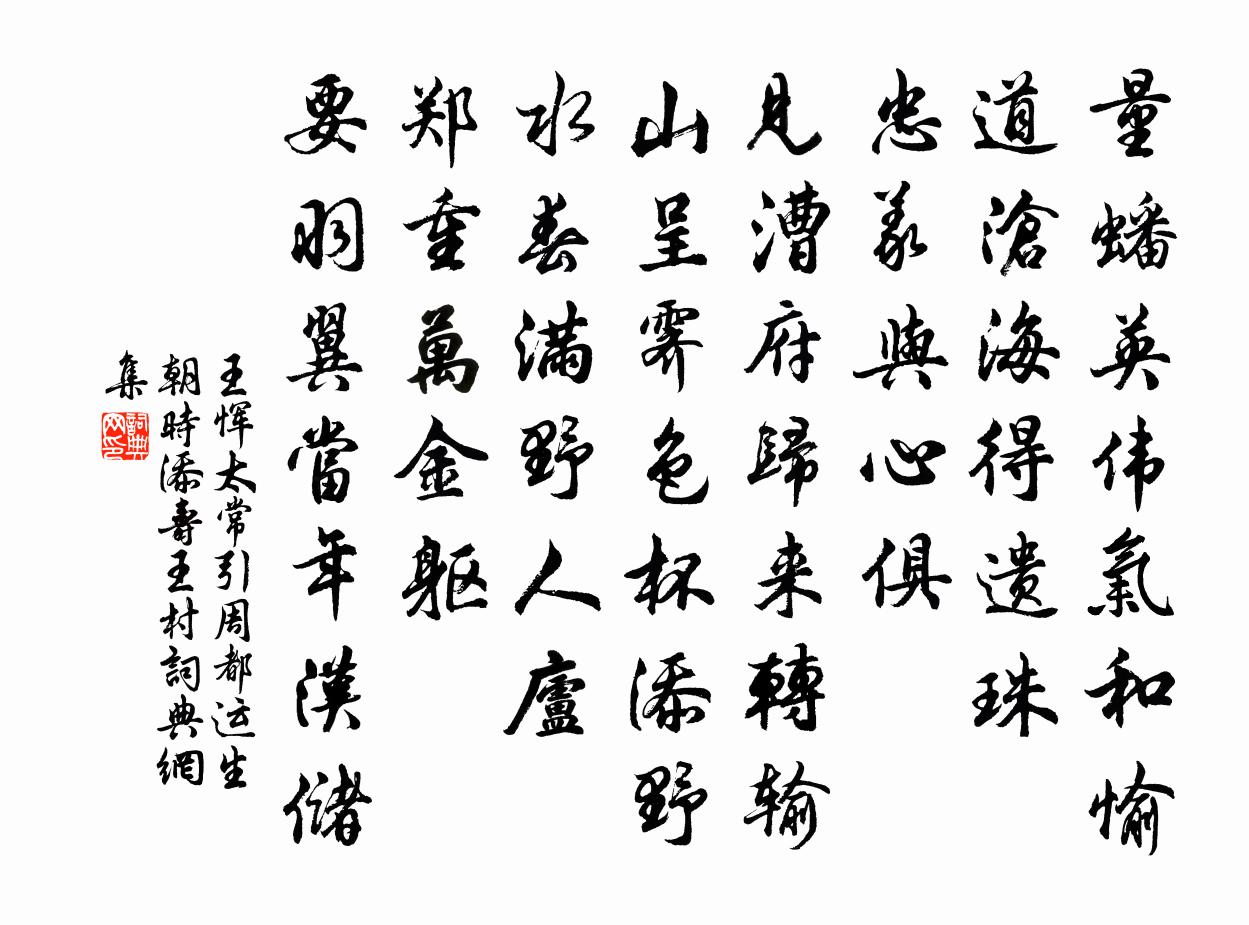 量蟠英伟氣和愉
道滄海得遺珠
忠義與心俱
見漕府歸来轉输
山呈霽色杯添野
水春滿野人廬
郑重萬金躯
要羽翼當年漢儲
王恽太常引周都运生
朝時添壽王村詞典網
集
詞典网印